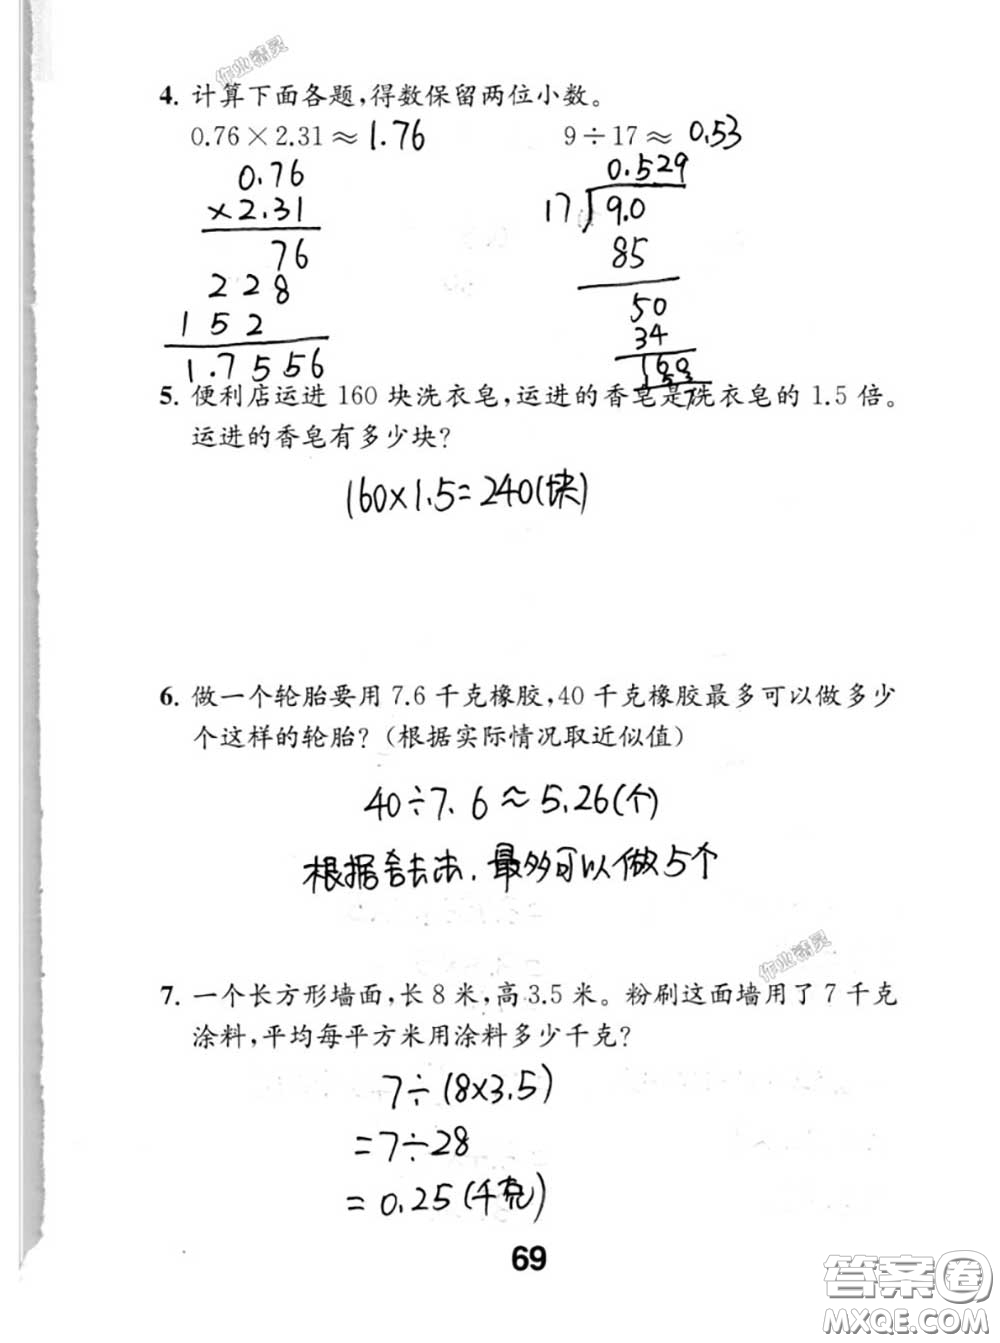 作业精灵
4. 计算下面各题,得数保留两位小数。
0.76×2.31≈1.76 9÷17≈0.53
0.76
×2.31
76
228
152
1.7556
0.529
17 9.0
85
50
34
160
153
7
5. 便利店运进 160 块洗衣皂,运进的香皂是洗衣皂的 1.5 倍。
运进的香皂有多少块?
160×1.5=240(块)
6. 做一个轮胎要用 7.6 千克橡胶,40 千克橡胶最多可以做多少
个这样的轮胎?(根据实际情况取近似值)
40÷7.6≈5.26(个)
根据舍去法,最多可以做5个
作业精灵
7. 一个长方形墙面,长 8 米,高 3.5 米。粉刷这面墙用了 7 千克
涂料,平均每平方米用涂料多少千克?
7÷(8×3.5)
=7÷28
=0.25(千克)
69
答案圈
MXQE.COM